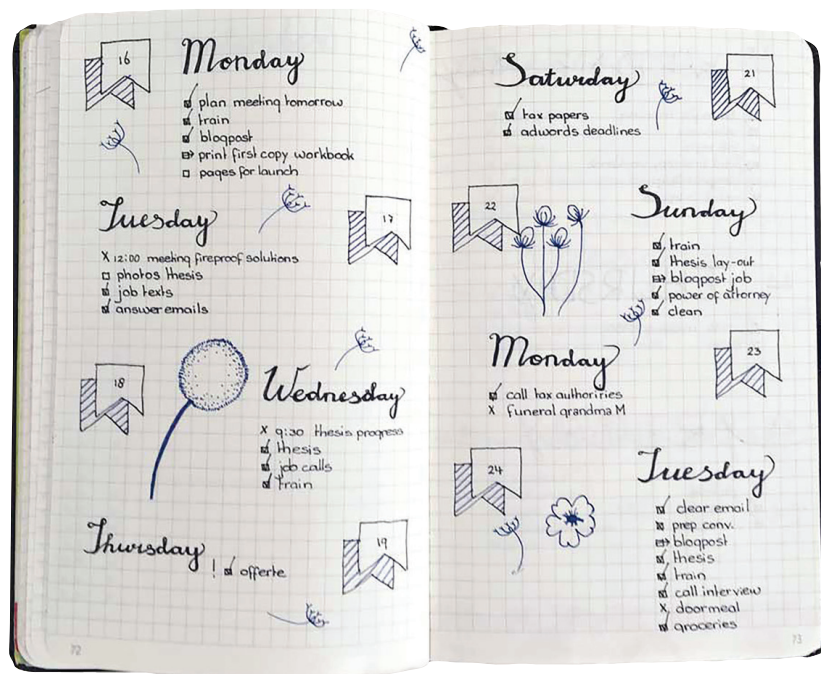 16
Monday
plan meeting tomorrow
train
blogpost
print first copy workbook
pages for launch
Tuesday
17
X 12:00 meeting fireproof solutions
photos thesis
job texts
answer emails
18
Wednesday
X 9:30 thesis progress
thesis
job calls
train
Thursday
19
! offerte
72
Saturday
21
tax papers
adwords deadlines
22
Sunday
train
thesis lay-out
blogpost job
power of attorney
clean
Monday
23
call tax authorities
X funeral grandma M
24
Tuesday
clear email
prep conv.
blogpost
thesis
train
call interview
X doormeal
groceries
73